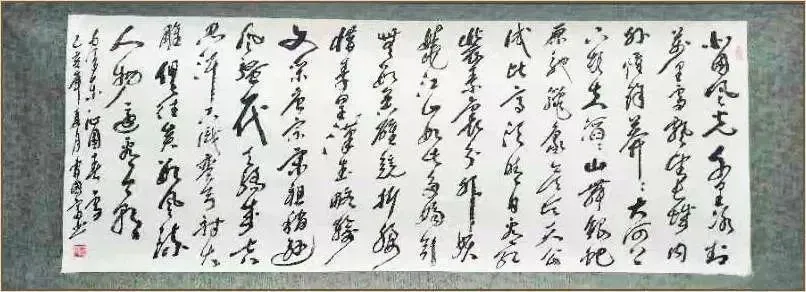 北国风光千里冰封
万里雪飘望长城内
外惟馀莽々大河上
下顿失滔々山舞银蛇
原驰蜡象欲与天公
试比高须晴日看红
装素裹分外妖
娆江山如此多娇引
无数英雄竞折腰
惜秦皇汉武略输
文采唐宗宋祖稍逊
风骚一代天骄成吉
思汗只识弯弓射大
雕俱往矣数风流
人物还看今朝
毛泽东沁园春雪
己亥年春月